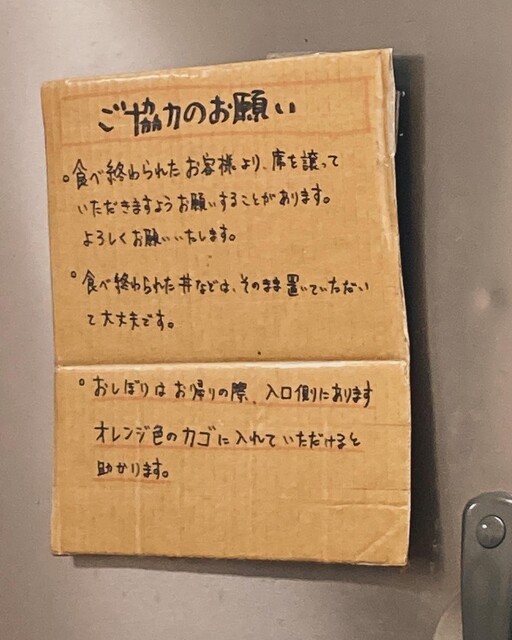 ご協力のお願い
。食べ終わられたお客様より、席を譲って
いただきますようお願いすることがあります。
よろしくお願いいたします。
。食べ終わられた丼などは、そのまま置いていただい
て大丈夫です。
。おしぼりはお帰りの際、入口側りにあります
オレンジ色のカゴに入れていただけると
助かります。